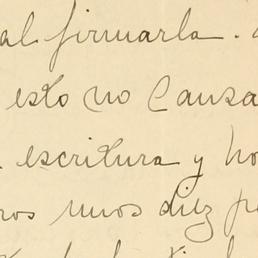 al firmarla.
esto no causa
escritura y ho
ros unos diez pe